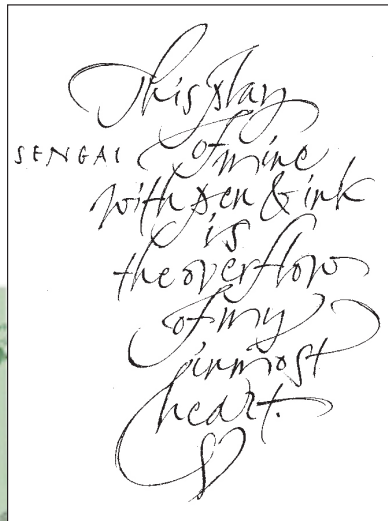 This play
SENGAI
of mine
with pen & ink
is
the overflow
of my
inmost
heart.